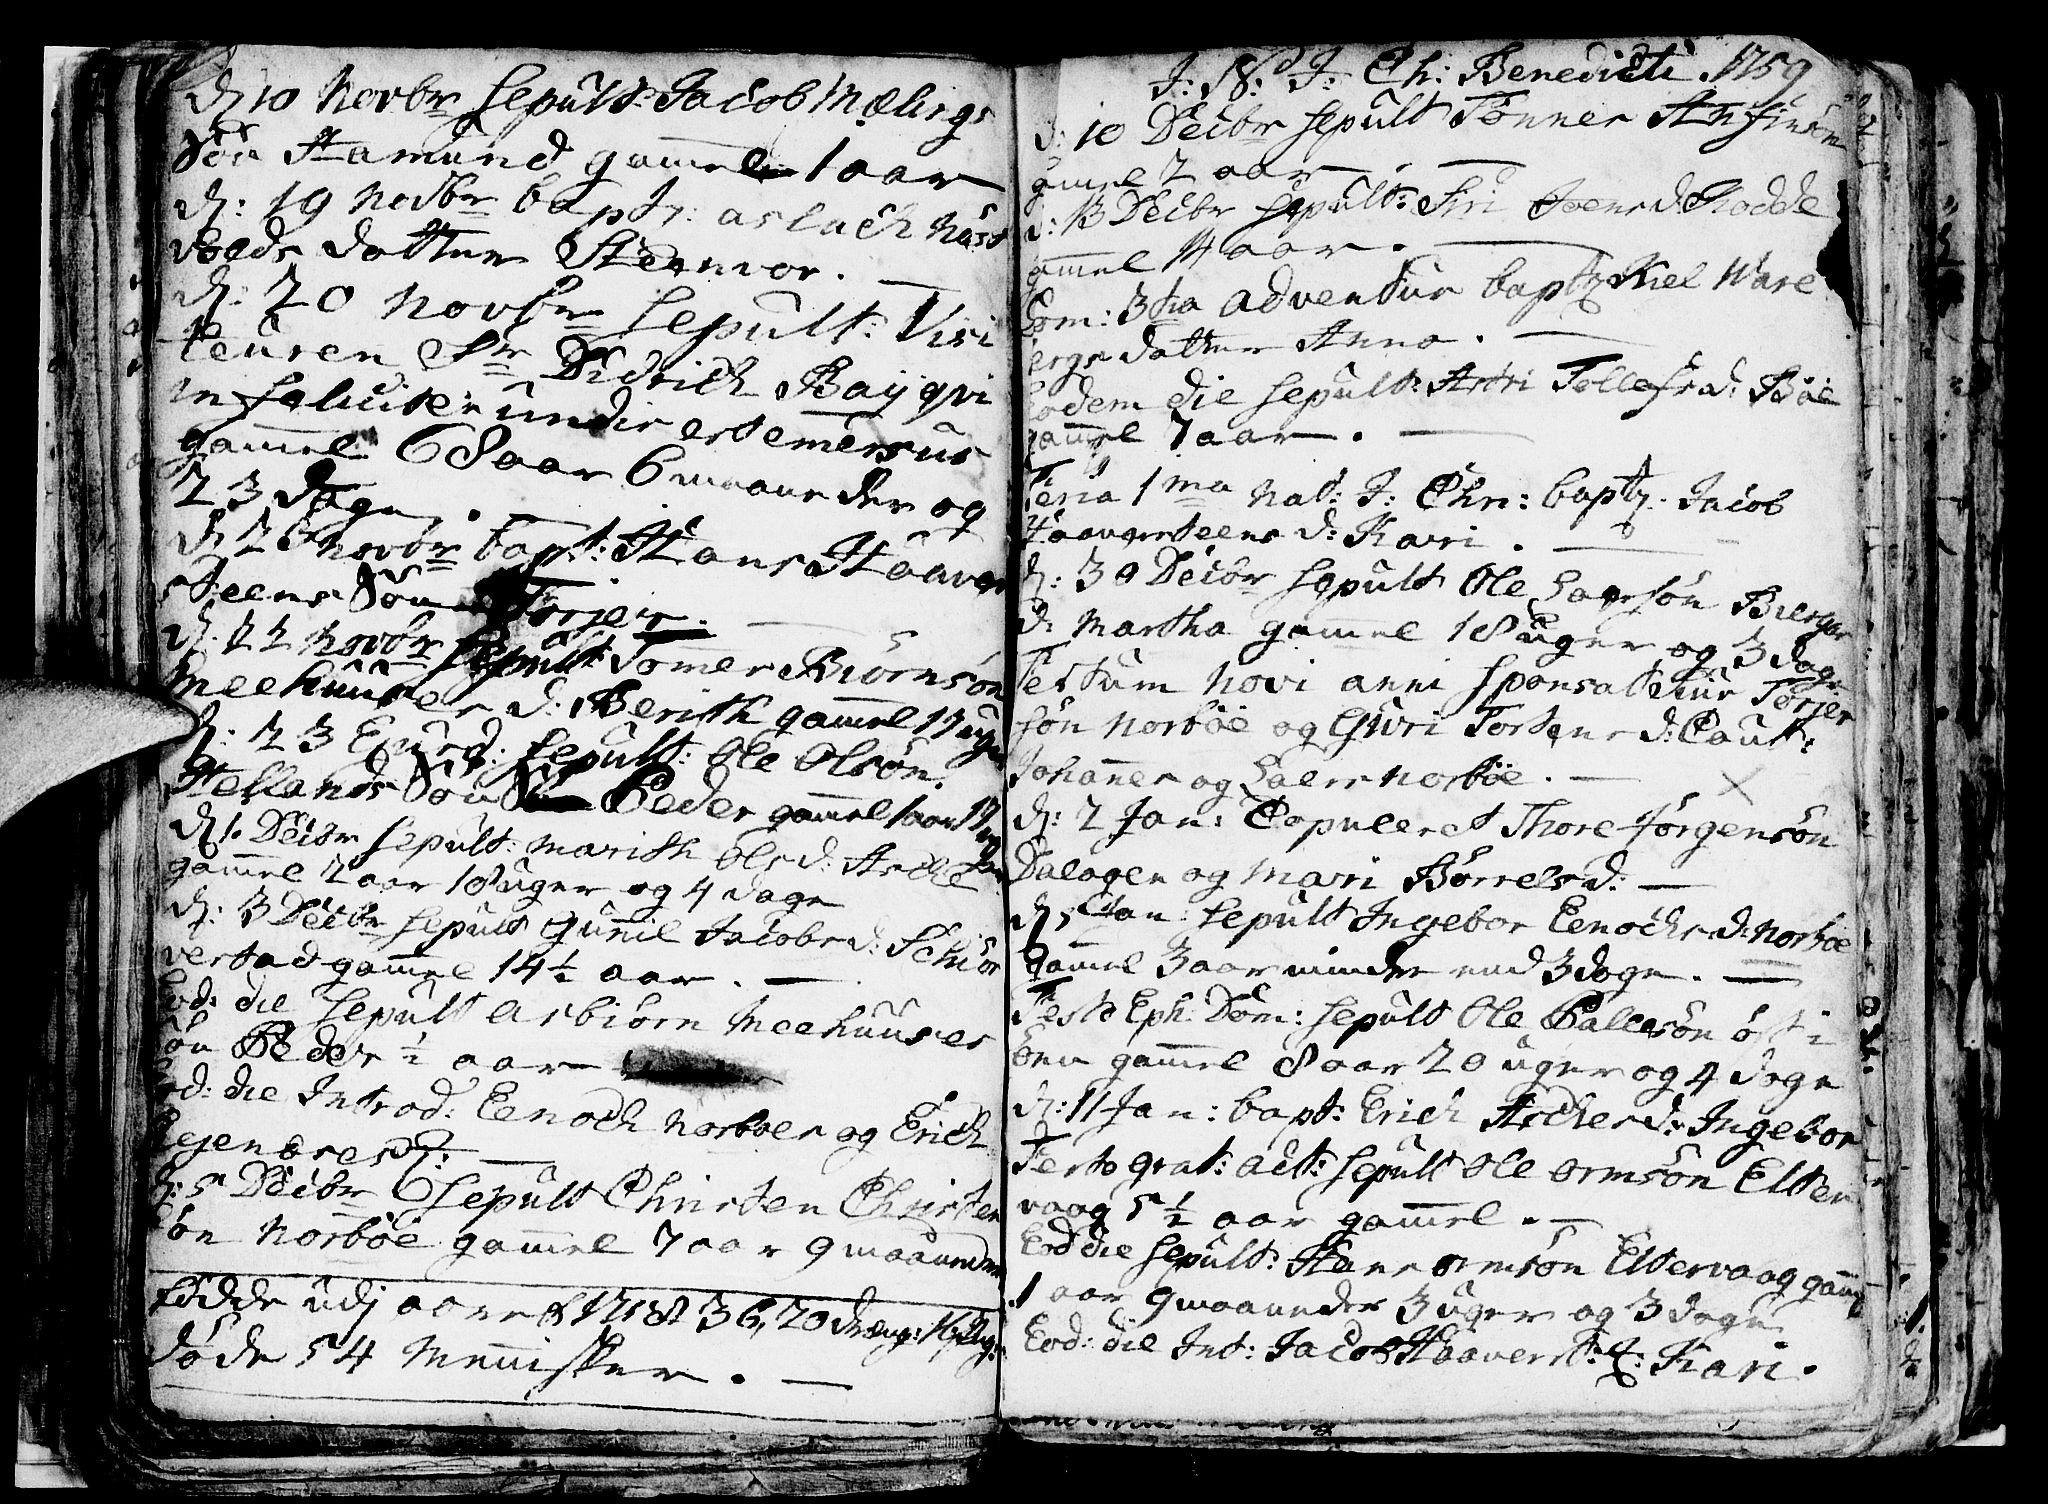 d: 10 Novbr sepult: Jacob Mælings
Søn Aamund gammel 1 aar
d: 19 Novbr bapt: Aslach Nast
voeds datter Steenvor.
d: 20 Novbr sepult: Visi
teuren Sr Didrich Baij qvi
in feliciter undis est emersus
gammel 68 aar 6 maaneder og
23 dage.
d: 23 Novbr bapt: Hans Haaver
steens Søn Torjer.
d. 22 Novbr sepult Tomes Biørnsøn
Meehuuses d: Berith gammel 17 uger
d: 23 Ejusd: sepult: Ole Olsøn
Hellands Søn Peder gammel 1 aar 17
d 1. Decbr sepult: Marith Olsd: Asche
gammel 2 aar 18 uger og 4 dage
d: 3 Decbr sepult Gunil Jacobsd: Schiør
vestad gammel 14 ½ aar.
Eod: die sepult Asbiørn Meehuuses
Søn Peder ½ aar
Eod: die Introd: Eenoch Norbøes og Erich
d: 5 Decbr sepult Christen Christen
søn Norbøe gammel 7 aar 9 maaneder
fødde udj aaret 1758 36, 20 dreng: 16 pig:
døde 54 Mennisker.
J: N: J: Ch: Benedicti. 1759
d: 10 Decbr sepult Tønnes Anfinsøn
gammel 2 aar.
d: 13 Decbr sepult: Siri Joens d: Hodde
gammel 14 aar.
Dom: 3tia adventus baptz Kiel Ware
bergs datter Anna.
Eodem die sepult: Astri Tollefsd: Bøe
gammel 7 aar.
Feria 1ma Nat: J: Chri: baptz. Jacob
Haaversteens d: Kari.
d: 30 Decbr sepult Ole Larsøn Bierges
d: Martha gammel 18 uger og 3 dage
Festum Novi anni sponsatus Torjer
søn Norbøe og Guri Tostens d: Caut:
Johannes og Laers Norbøe.
d: 2 Jan: Copuleret Thore Jørgensøn
Dalagen og Mari Børrelsd:
d 5 Jan: sepult Ingebor Eenochsd: Norbøe
gammel 3 aar minder end 3 dage.
Festo Eph: Dom: sepult Ole Pallesøn øst i
Øen gammel 8 aar 20 uger og 4 dage
d: 11 Jan: bapt: Erich Asches d: Ingebor
Festo grat: act: sepult Ole Ormsøn Elter
vaag 5 ½ aar gammel.
Eod die sepult: Hans Ormsøn Eltervaag gaml
1 aar 9 maaneder 3 uger og 3 dage
Eod: die Int: Jacob Haaverst: Kari.